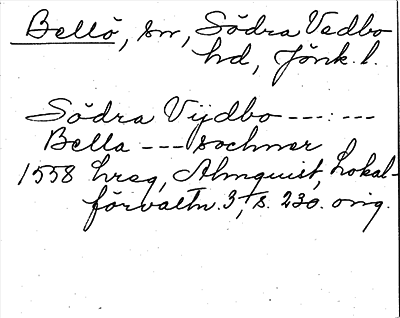 Bellö, sn, Södra Vedbo
hd, Jönk. l.
Södra Vijdbo ---:---
Bella --- sochner
1558 hreg, Almquist, Lokal-
förvaltn. 3, s. 230. orig.